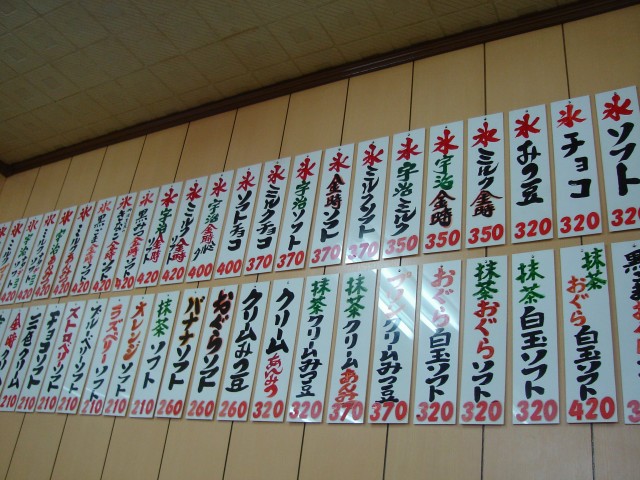 氷 ソフト 320
氷 チョコ 320
氷 みつ豆 320
氷 ミルク金時 350
氷 宇治金時 350
氷 宇治ミルク 350
氷 ミルクソフト 370
氷 金時ソフト 370
氷 宇治ソフト 370
氷 ミルクチョコ 370
氷 ソフトチョコ 400
氷 宇治金時 400
氷 ミルク金時ソフト 420
氷 宇治金時ソフト 420
氷 黒みつ金時ソフト 420
氷 きなこ金時ソフト 420
抹茶おぐら白玉ソフト 420
抹茶白玉ソフト 320
抹茶おぐらソフト 320
おぐら白玉ソフト 320
プリンクリームみつ豆 370
抹茶クリームあんみつ 370
抹茶クリームみつ豆 320
クリームあんみつ 320
クリームみつ豆 260
おぐらソフト 260
バナナソフト 260
抹茶ソフト 260
オレンジソフト 210
ラズベリーソフト 210
ブルーベリーソフト 210
ストロベリーソフト 210
チョコソフト 210
三色ソフト 210
クリーム 210